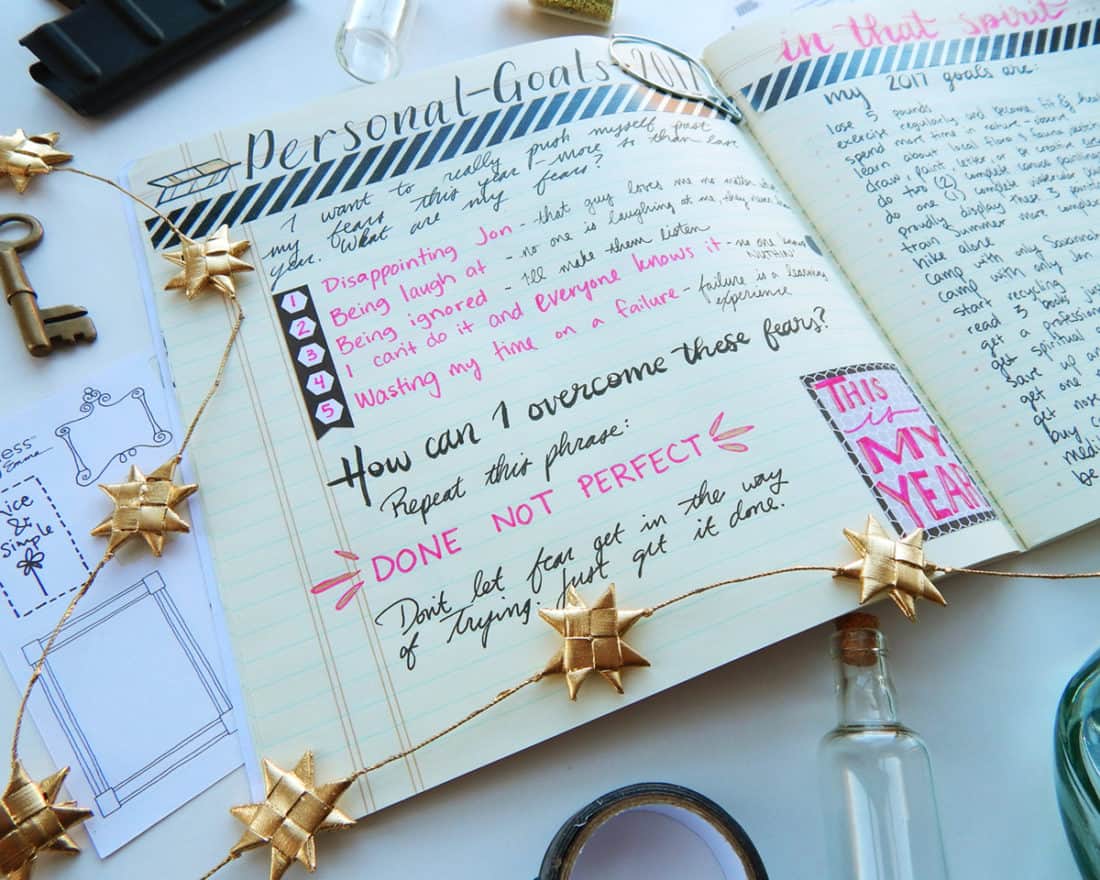 Personal-Goals 2017
I want to really push myself past
my fears this year - more so than last
year. What are my fears?
1 Disappointing Jon - that guy loves me no matter what
2 Being laugh at - no one is laughing at me, they never
3 Being ignored - I'll make them listen
4 I can't do it and everyone knows it - no one knows NUTHIN'
5 Wasting my time on a failure - failure is a learning experience
How can I overcome these fears?
Repeat this phrase:
DONE NOT PERFECT
Don't let fear get in the way
of trying. Just get it done.
THIS
is
MY
YEAR
in that spirit
my 2017 goals are:
lose 5 pounds
exercise regularly and become fit &
spend more time in nature
learn about local flora & fauna
draw, paint, letter, or be creative
do two (2) complete canvas paintings
do one (1) complete watercolor
proudly display these 3
train Summer more
hike alone
camp with only Savannah
camp with only Jon
start recycling
read 3 books
get a professional
get spiritual
save up
get one
get nose
buy
be
ess
nice
&
simple